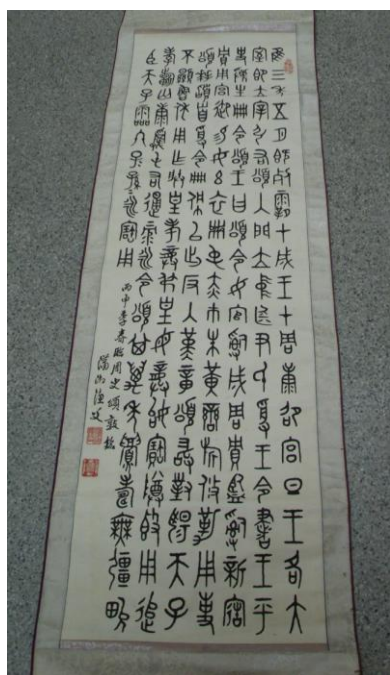 隹三年五月既死霸甲戌王才周康卲宮旦王各大
室即立宰弘右頌入門立中廷尹氏受王令書王乎
史虢生冊令頌王曰頌令女官𤔲成周貯監𤔲新寤
貯用宮御易女玄衣黹屯赤巿朱黃鑾旂攸勒用事
頌拜𩒨首受令冊佩以出反入堇章頌敢對揚天子
不顯魯休用乍朕皇考龏弔皇母龏姒寶尊𣪘用追
孝𣄨匄康䨴屯右通彔永令頌其萬年眉壽無疆畯
臣天子霝冬子子孫孫永寶用
丙申季春臨周史頌敦銘
漁父